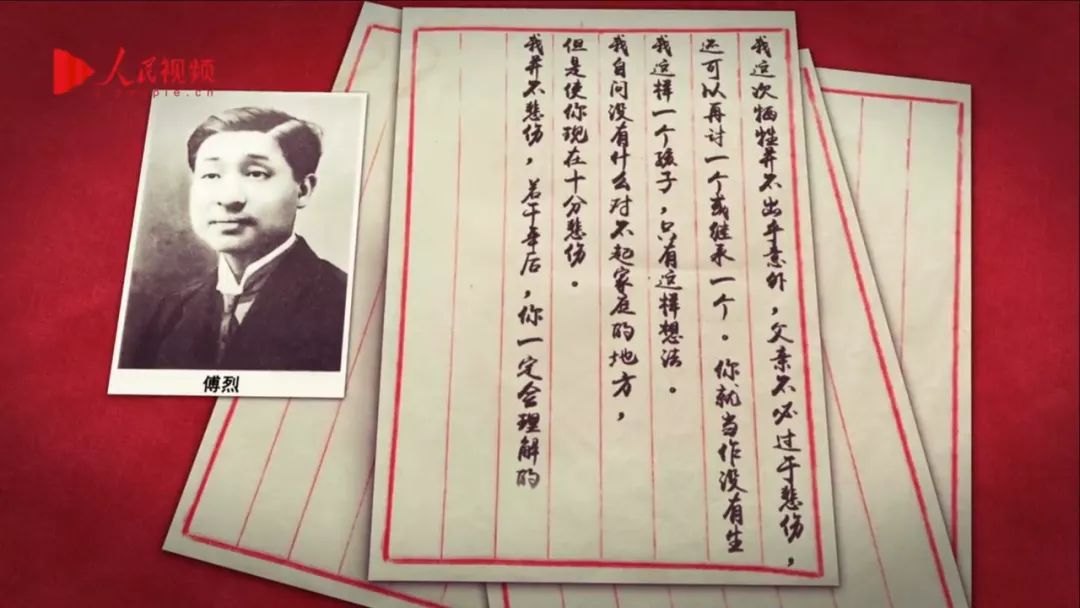 人民视频
傅烈
我这次牺牲并不出乎意外，父亲不必过于悲伤，
还可以再讨一个或继承一个。你就当作没有生
我这样一个孩子，只有这样想法。
我自问没有什么对不起家庭的地方，
但是使你现在十分悲伤。
我并不悲伤，若干年后，你一定会理解的